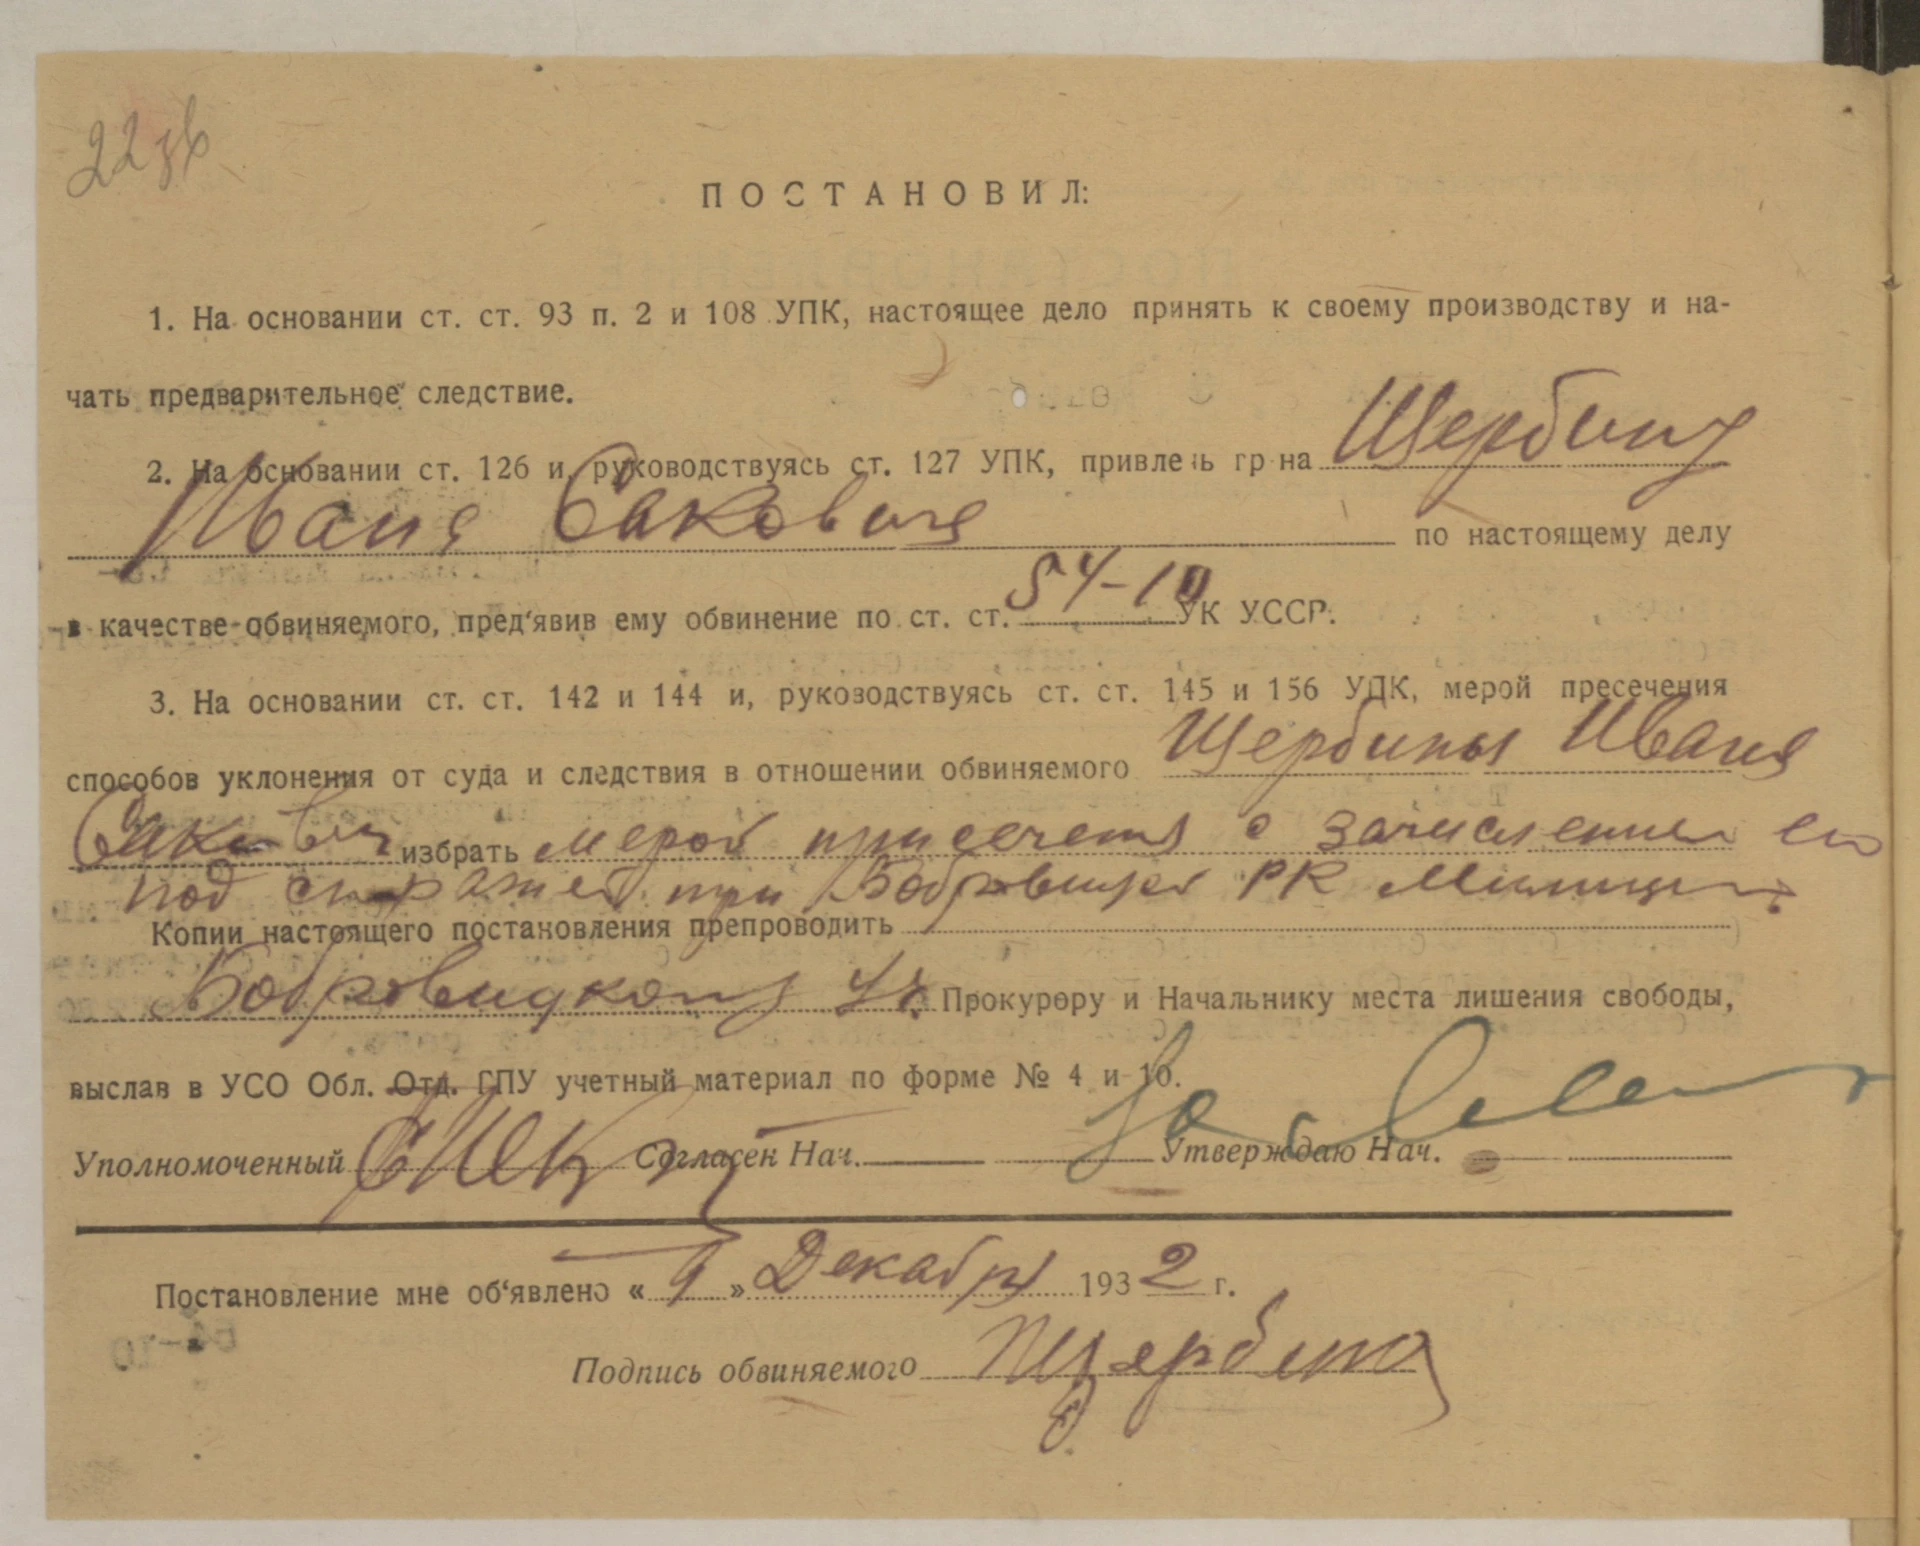 22 зв
ПОСТАНОВИЛ:
1. На основании ст. ст. 93 п. 2 и 108 УПК, настоящее дело принять к своему производству и на-
чать предварительное следствие.
2. На основании ст. 126 и, руководствуясь ст. 127 УПК, привлечь гр-на Щербину
Ивана Саковича по настоящему делу
в качестве обвиняемого, пред'явив ему обвинение по ст. ст. 54-10 УК УССР.
3. На основании ст. ст. 142 и 144 и, руководствуясь ст. ст. 145 и 156 УПК, мерой пресечения
способов уклонения от суда и следствия в отношении обвиняемого Щербины Ивана
Саковича избрать мерой присечения с зачислением его
под стражей при Бобровицкой РК Милиции.
Копии настоящего постановления препроводить
Бобровицкому Уч. Прокурору и Начальнику места лишения свободы,
выслав в УСО Обл. Отд. ГПУ учетный материал по форме № 4 и 10.
Уполномоченный Согласен Нач. Утверждаю Нач.
Постановление мне об'явлено « 9 » Декабря 1932 г.
Подпись обвиняемого Щербина